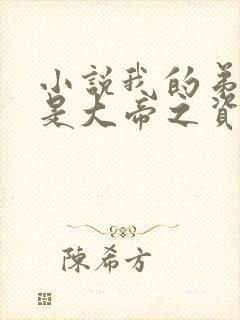 小說我的弟
是大帝之資
陳希方